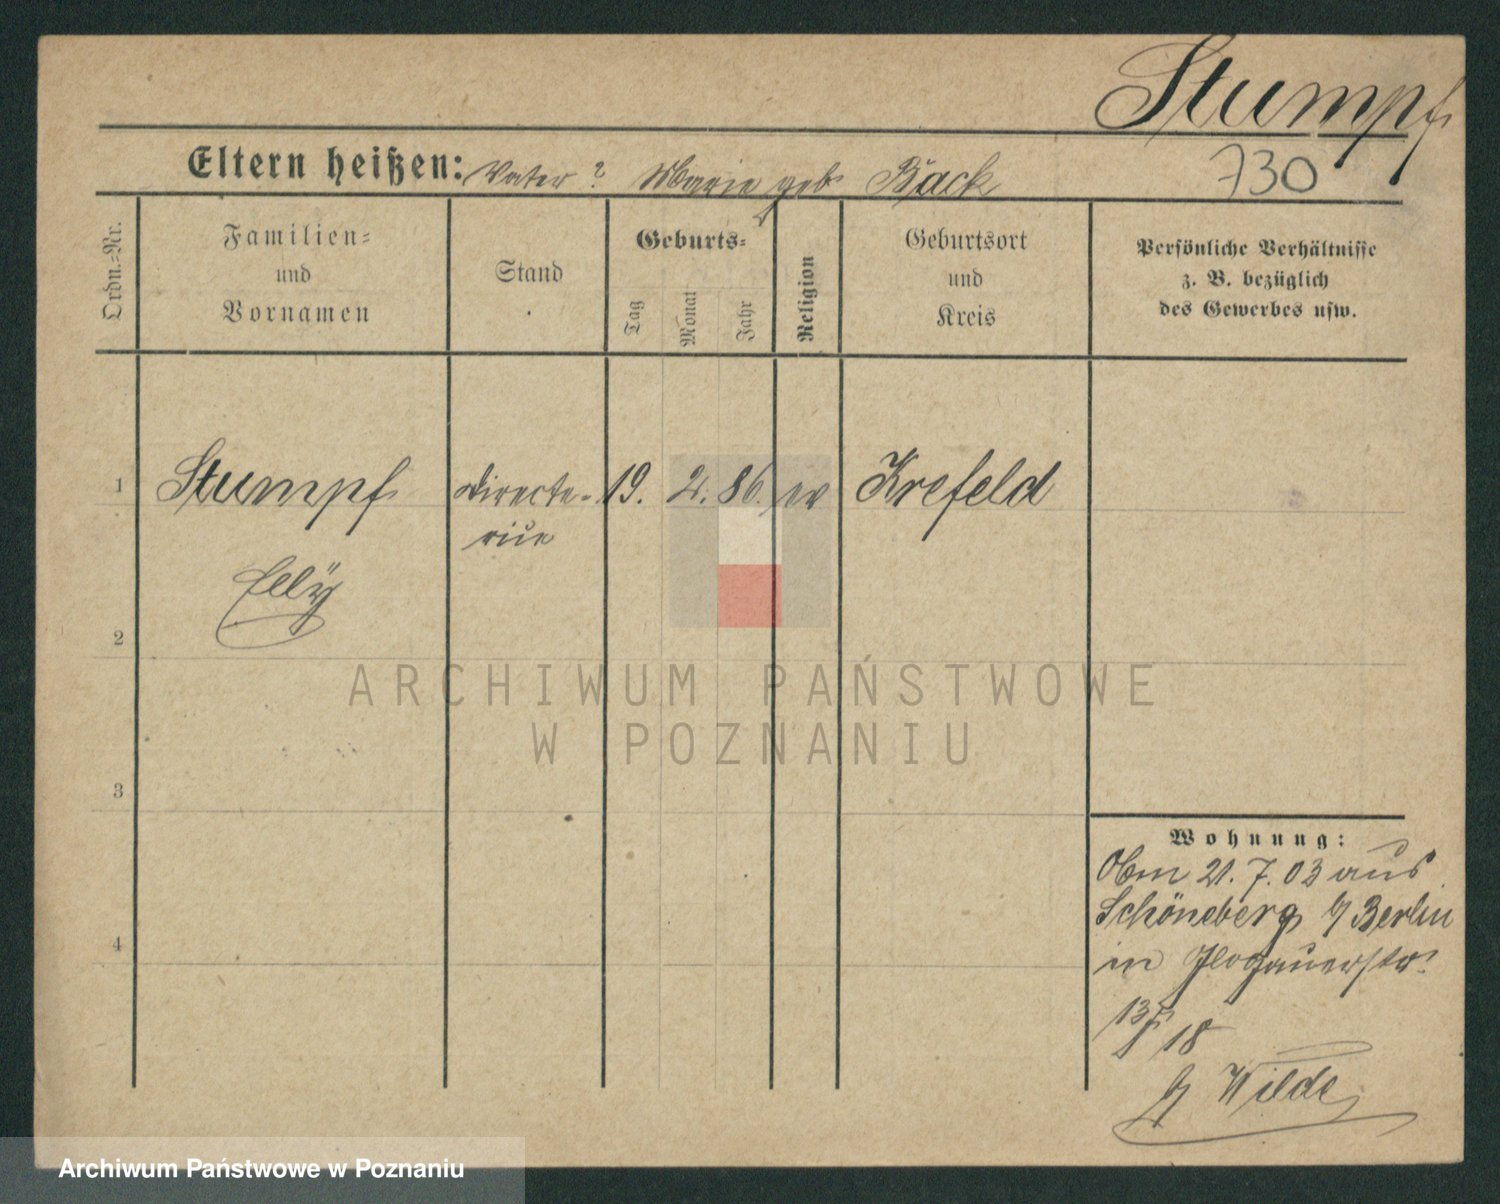 Stumpf
730
Eltern heißen: Vater? Marie geb. Back
Ordn.-Nr.
Familien-
und
Vornamen
Stand
Geburts-
Tag
Monat
Jahr
Religion
Geburtsort
und
Kreis
Persönliche Verhältnisse
z. B. bezüglich
des Gewerbes usw.
1 Stumpf Directe- 19. 2. 86. ev Krefeld
rice
Elly
2
3
4
ARCHIWUM PAŃSTWOWE
W POZNANIU
Wohnung:
21. 7. 03 aus
Schöneberg b/ Berlin
in Glogauerstr.
18
b/ Wilde
Archiwum Państwowe w Poznaniu